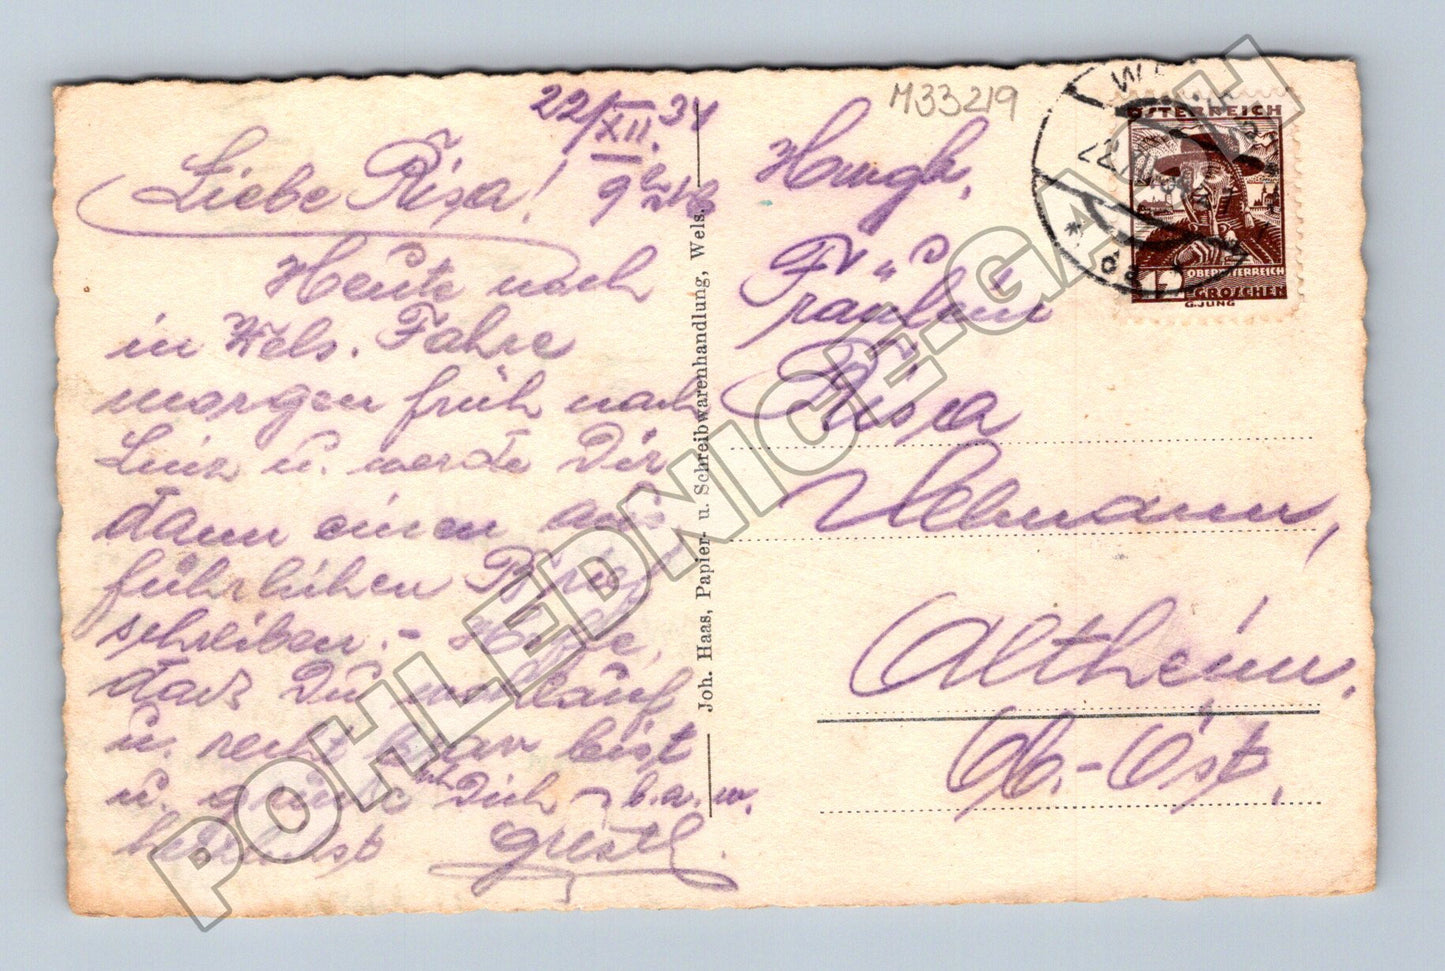 22/XII. 34
Liebe Risa!
Heute noch
in Wels. Fahre
morgen früh nach
Linz u. werde Dir
dann einen aus-
führlichen Brief
schreiben. - Hoffe,
daß Du wohlauf
u. recht brav bist
u. grüße Dich - b.a.m.
herzlichst Gustl.
M33219
Fräulein
Risa
Altheim.
Ob.-Öst.
Joh. Haas, Papier- u. Schreibwarenhandlung, Wels.
ÖSTERREICH
OBERÖSTERREICH
12 GROSCHEN
G.JUNG
POHLEDNICE-GASH